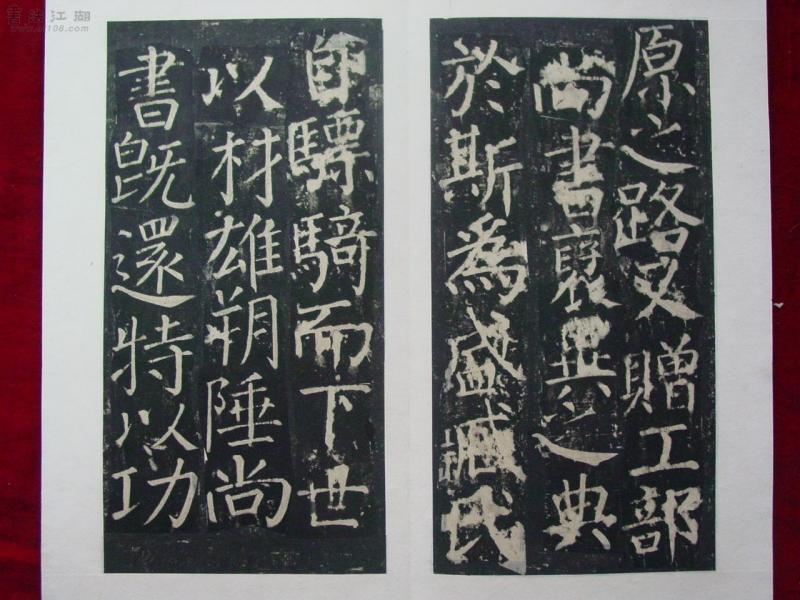 原之路又贈工部
尚書褒異之典
於斯為盛臧氏
自驃騎而下世
以材雄朔陲尚
書既還特以功
書法江湖